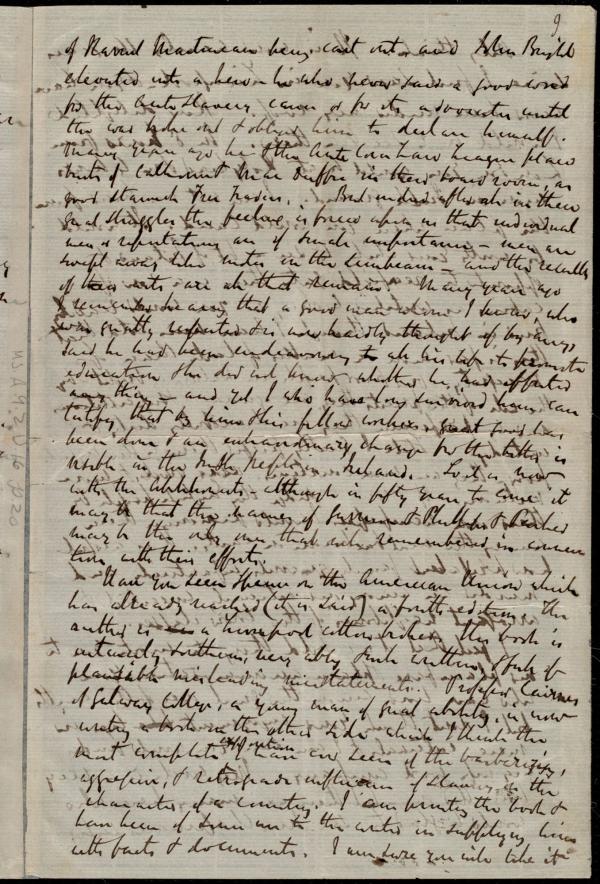 9
of Harriet Martineau being cast out, and John Bright
elevated into a hero - he who never said a good word
for the Anti Slavery cause or for its advocates until
the war broke out & obliged him to declare himself.
Many years ago he & the Anti Corn Law League placed
busts of Calhoun & MacDuffie in their board room, as
good staunch Free Traders. But indeed after all in these
great struggles the feeling is forced upon us that individual
men & reputations are of small importance - men are
swept away like motes in the sunbeam - and the results
of their acts are all that remains. Many years ago
I remember hearing that a good man whom I knew, who
was greatly respected & is now hardly thought of by any,
said he had been endeavouring to all his life to promote
education & he did not know whether he had effected
any thing - and yet I who have long survived him can
testify that by him & his fellow workers great good has
been done & an extraordinary change for the better is
visible in the Irish people in Ireland. So it is now
with the Abolitionists - although in fifty years to come it
may be that the names of Garrison & Phillips & Parker
may be the only ones that will be remembered in connec
tion with their efforts.
Have you seen Spence on the American Union which
has already reached (it is said) a fourth edition. The
author is a Liverpool cotton broker. His book is
intensely Southern, very ably written, & full of
plausible misleading misstatements. Professor Cairnes
of Galway College, a young man of great ability, is now
writing a book on the other side which I think the
most complete exposition I have ever seen of the barbarizing,
aggressive, & retrograde influences of slavery on the
character of a country. I am printing the book &
have been of some use to the writer in supplying him
with facts & documents. I am sure you will like it